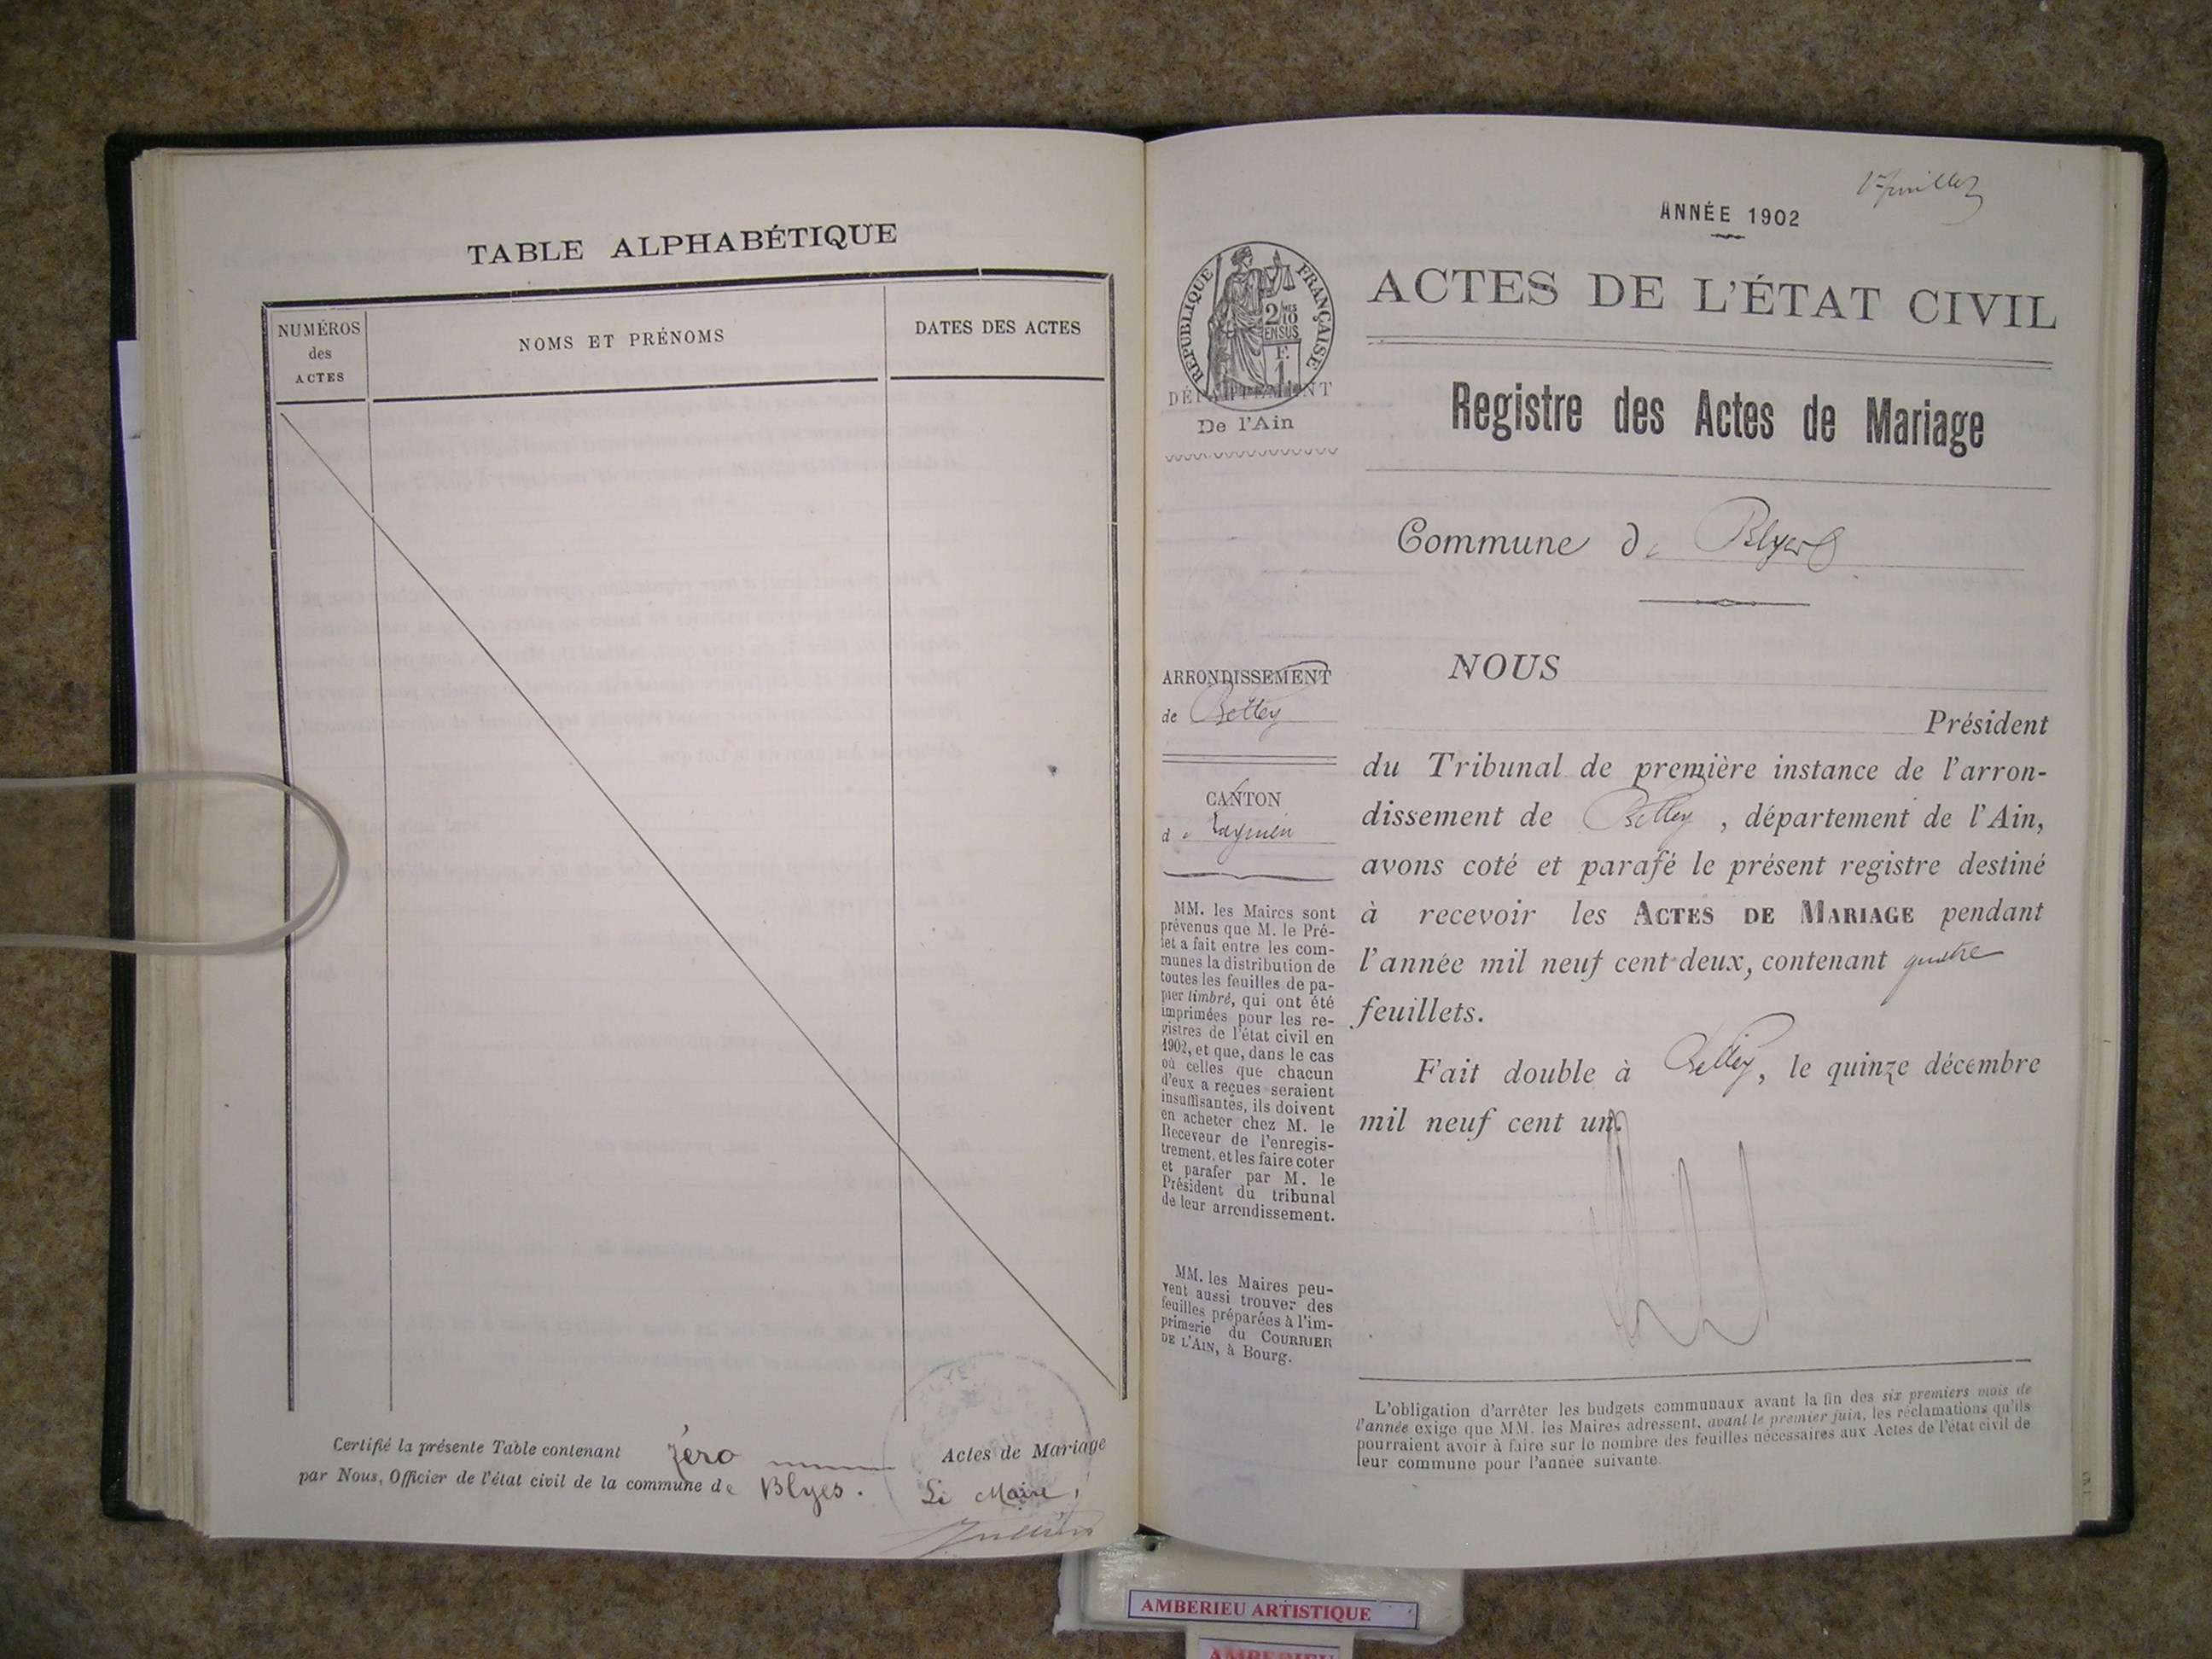 TABLE ALPHABÉTIQUE
NUMÉROS
des
ACTES
NOMS ET PRÉNOMS
DATES DES ACTES
Certifié la présente Table contenant zéro Actes de Mariage
par Nous, Officier de l'état civil de la commune de Blyes.
Le Maire,
1er feuillet
ANNÉE 1902
RÉPUBLIQUE FRANÇAISE
2 MES
10
EN SUS
F.
1
ACTES DE L'ÉTAT CIVIL
DÉPARTEMENT
De l'Ain
Registre des Actes de Mariage
Commune de Blyes
ARRONDISSEMENT
de Belley
CANTON
de Lagnieu
MM. les Maires sont
prévenus que M. le Pré-
fet a fait entre les com-
munes la distribution de
toutes les feuilles de pa-
pier timbré, qui ont été
imprimées pour les re-
gistres de l'état civil en
1902, et que, dans le cas
où celles que chacun
d'eux a reçues seraient
insuffisantes, ils doivent
en acheter chez M. le
Receveur de l'enregis-
trement, et les faire coter
et parafer par M. le
Président du tribunal
de leur arrondissement.
MM. les Maires peu-
vent aussi trouver des
feuilles préparées à l'im-
primerie du COURRIER
DE L'AIN, à Bourg.
NOUS
Président
du Tribunal de première instance de l'arron-
dissement de Belley, département de l'Ain,
avons coté et parafé le présent registre destiné
à recevoir les ACTES DE MARIAGE pendant
l'année mil neuf cent deux, contenant quatre
feuillets.
Fait double à Belley, le quinze décembre
mil neuf cent un.
L'obligation d'arrêter les budgets communaux avant la fin des six premiers mois de
l'année exige que MM. les Maires adressent, avant le premier juin, les réclamations qu'ils
pourraient avoir à faire sur le nombre des feuilles nécessaires aux Actes de l'état civil de
leur commune pour l'année suivante.
AMBERIEU ARTISTIQUE
AMBERIEU